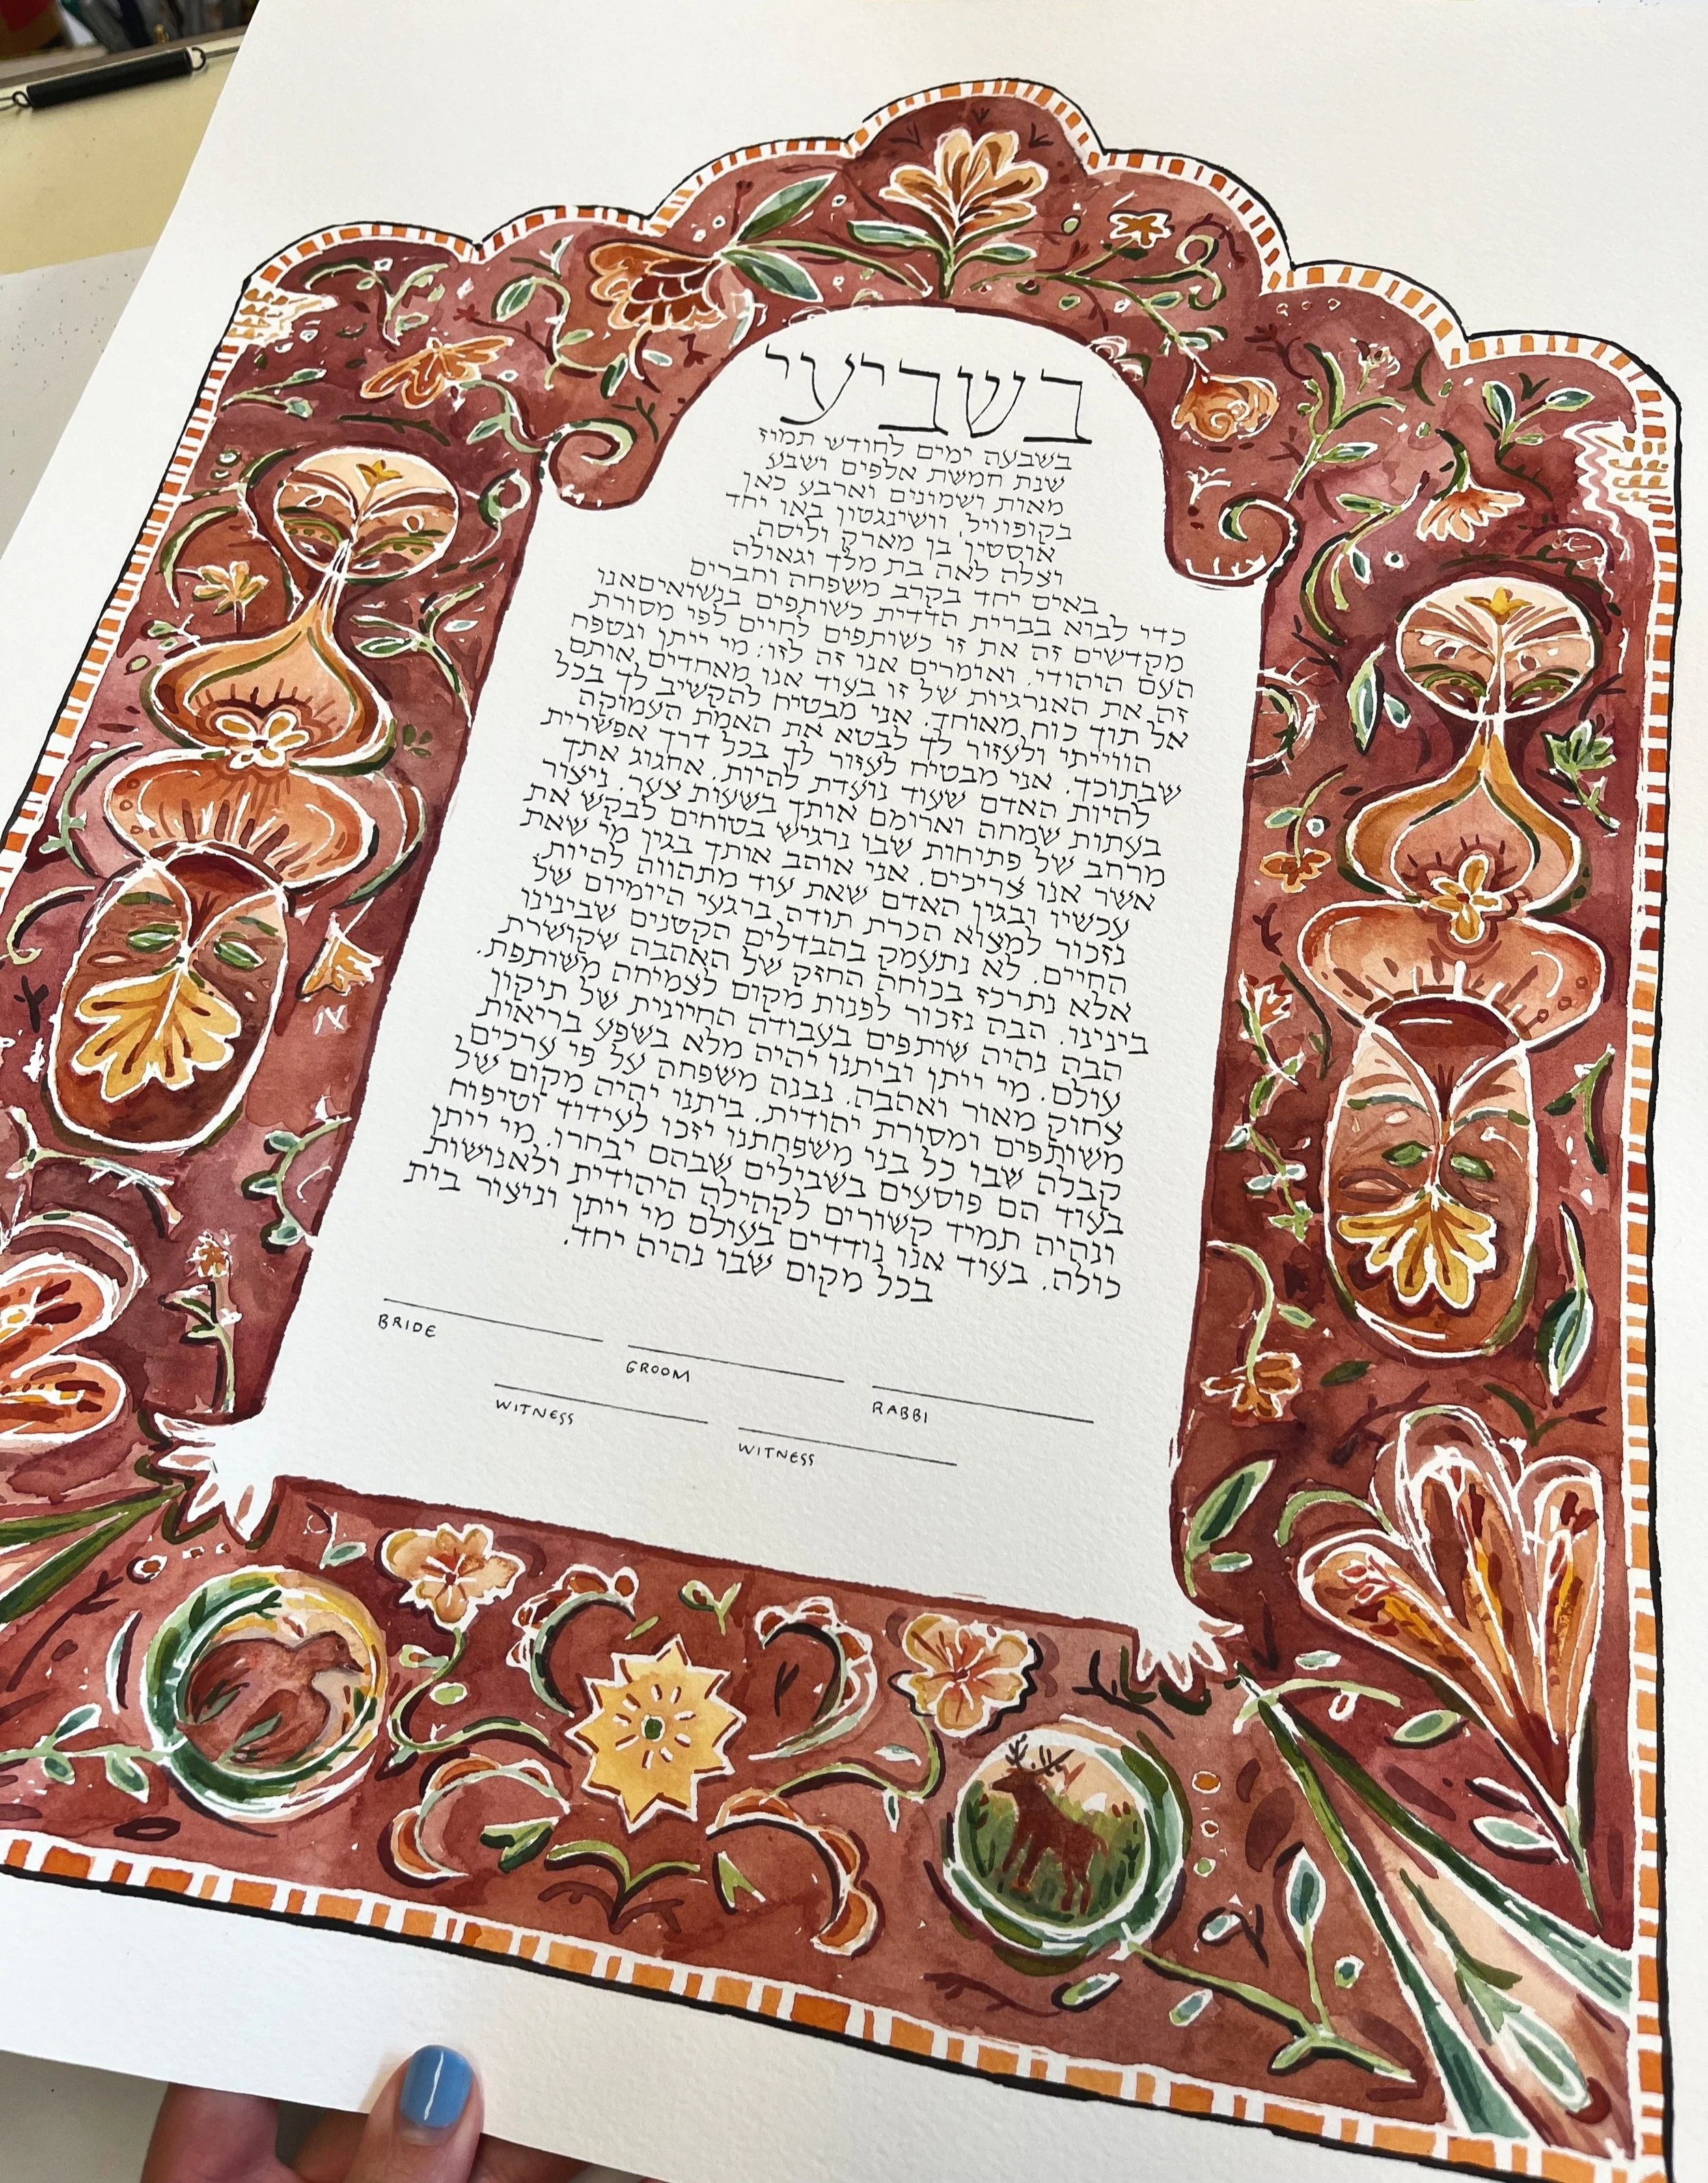 בשביעי
בשבעה ימים לחודש תמוז
שנת חמשת אלפים ושבע
מאות ושמונים וארבע כאן
בקופוויל, וושינגטון באו יחד
אוסטין בן מארק וליסה
ויצלה לאה בת מלך וגאולה
באים יחד בקרב משפחה וחברים
כדי לבוא בברית הדדית כשותפים בנשיאים אנו
מקדשים זה את זו כשותפים לחיים לפי מסורת
העם היהודי. ואומרים אנו זה לזו: מי ייתן ונטפח
זה את האנרגיות של זו בעוד אנו מאחדים אותם
אל תוך כוח מאוחד. אני מבטיח להקשיב לך בכל
הווייתי ולעזור לך לבטא את האמת העמוקה
שבתוכך. אני מבטיח לעזור לך בכל דרך אפשרית
להיות האדם שעוד נועדת להיות. אחגוג אתך
בעתות שמחה וארומם אותך בשעות צער. ניצור
מרחב של פתיחות שבו נרגיש בטוחים לבקש את
אשר אנו צריכים. אני אוהב אותך בגין מי שאת
עכשיו ובגין האדם שאת עוד מתהווה להיות.
נזכור למצוא הכרת תודה ברגעי היומיום של
החיים. לא נתעמק בהבדלים הקטנים שבינינו
אלא נתרכז בכוחה החזק של האהבה שקושרת
בינינו. הבה נזכור לפנות מקום לצמיחה משותפת.
הבה נהיה שותפים בעבודה החיונית של תיקון
עולם. מי ייתן וביתנו יהיה מלא בשפע בריאות
צחוק מאור ואהבה. נבנה משפחה על פי ערכים
משותפים ומסורת יהודית. ביתנו יהיה מקום של
קבלה שבו כל בני משפחתנו יזכו לעידוד וטיפוח
בעוד הם פוסעים בשבילים שבהם יבחרו. מי ייתן
ונהיה תמיד קשורים לקהילה היהודית ולאנושות
כולה. בעוד אנו נודדים בעולם מי ייתן וניצור בית
בכל מקום שבו נהיה יחד.
BRIDE
GROOM
RABBI
WITNESS
WITNESS